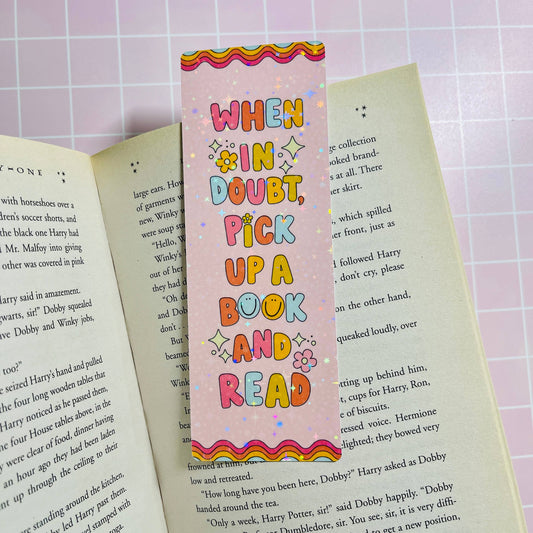 WHEN
IN
DOUBT,
PICK
UP A
BOOK
AND
READ
Y-ONE
with horseshoes over a
dren's soccer shorts, and
the black one Harry had
Mr. Malfoy into giving
other was covered in pink
Harry said in amazement.
sir!" Dobby squealed
Dobby and Winky jobs,
too?"
seized Harry's hand and pulled
the four long wooden tables that
Harry noticed as he passed them,
the four House tables above, in the
were clear of food, dinner having
an hour ago they had been laden
up through the ceiling to their
were standing around the kitchen,
led Harry past them,
stamped with
large ears. How
of garments w
new, Winky w
were soup sta
"Hello, W
Winky's
out of her
they had d
"Oh de
don't . .
But W
beamed
collection
brand-
at all. There
skirt.
, which spilled
front, just as
followed Harry
don't cry, please
on the other hand,
squeaked loudly, over
tting up behind him,
cups for Harry, Ron,
of biscuits.
ressed voice. Hermione
delighted; they bowed very
frowned at him, but
low and retreated.
"How long have you been here, Dobby?" Harry asked as Dobby
handed around the tea.
"Only a week, Harry Potter, sir!" said Dobby happily. "Dobby
Professor Dumbledore, sir. You see, sir, it is very diffi-
to get a new position,